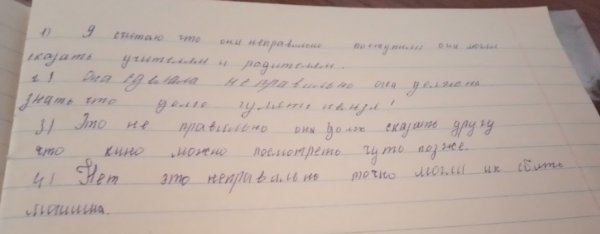 1) Я считаю что они неправильно поступили они могли
сказать учителям и родителям.
2) Она сделала неправильно она должна
знать что долго гулять нельзя!
3) Это не правильно он долж сказать другу
что кино можно посмотреть чуто позже.
4) Нет это неправильно точно могли их сбить
машина.